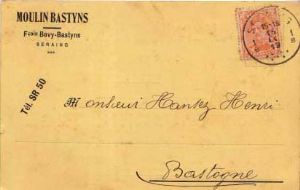 MOULIN BASTYNS
Fçois Bovy-Bastyns
SERAING
Tél. SR 50
Monsieur Hansez Henri
Bastogne